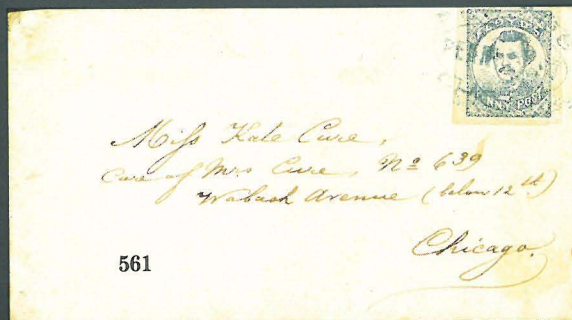 PENNY POST
Miss Kate Cure,
Care of Mrs Cure, No 639
Wabash Avenue (below 12th)
Chicago.
561